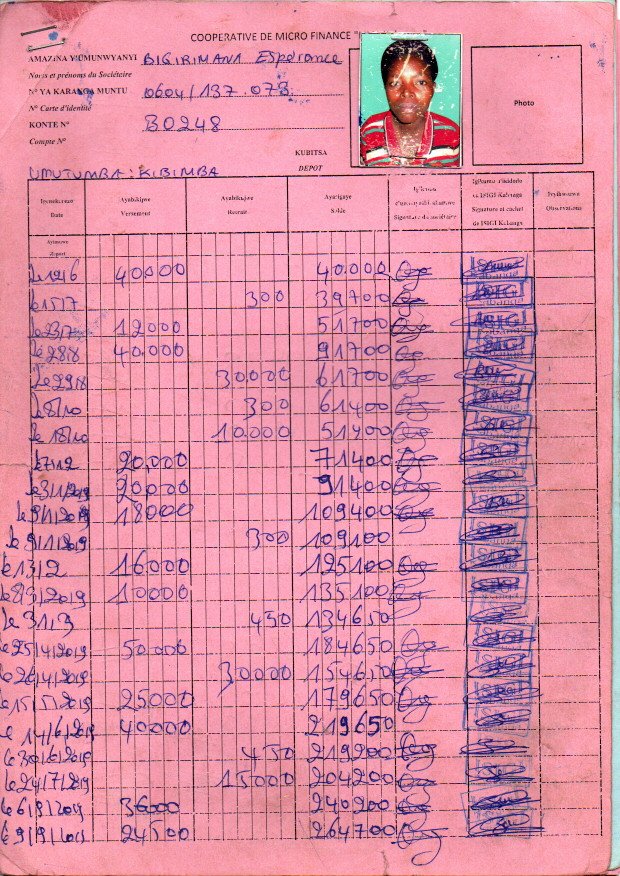 COOPERATIVE DE MICRO FINANCE "
AMAZINA Y'UMUNWYANYI BIGIRIMANA Espérance
Noms et prénoms du Sociétaire
N° YA KARANGA MUNTU 0604/137.073
N° Carte d'identité
KONTE N° B0248
Compte N°
Photo
KUBITSA
DEPOT
UMUTUMBA: KIBIMBA
Date Versement Retrait Solde Signature du sociétaire Signature et cachet de ISIGI Kalanga Observations
Report
40.000 40.000
le 15/7 300 39700
le 23/7 12000 51700
le 28/8 40.000 91700
le 29/8 30.000 61700
le 8/10 300 61400
le 18/10 10.000 51400
le 7/12 20.000 71400
le 3/1/2019 20000 91400
le 9/1/2019 18000 109400
le 9/1/2019 300 109100
le 13/2 16000 125100
le 8/3/2019 10000 135100
le 31/3 450 134650
le 25/4/2019 50.000 184650
le 26/4/2019 30000 154650
le 15/5/2019 25000 179650
le 14/6/2019 40000 219650
le 30/6/2019 450 219200
le 24/7/2019 15000 204200
le 6/9/2019 36000 240200
le 9/9/2019 24500 264700